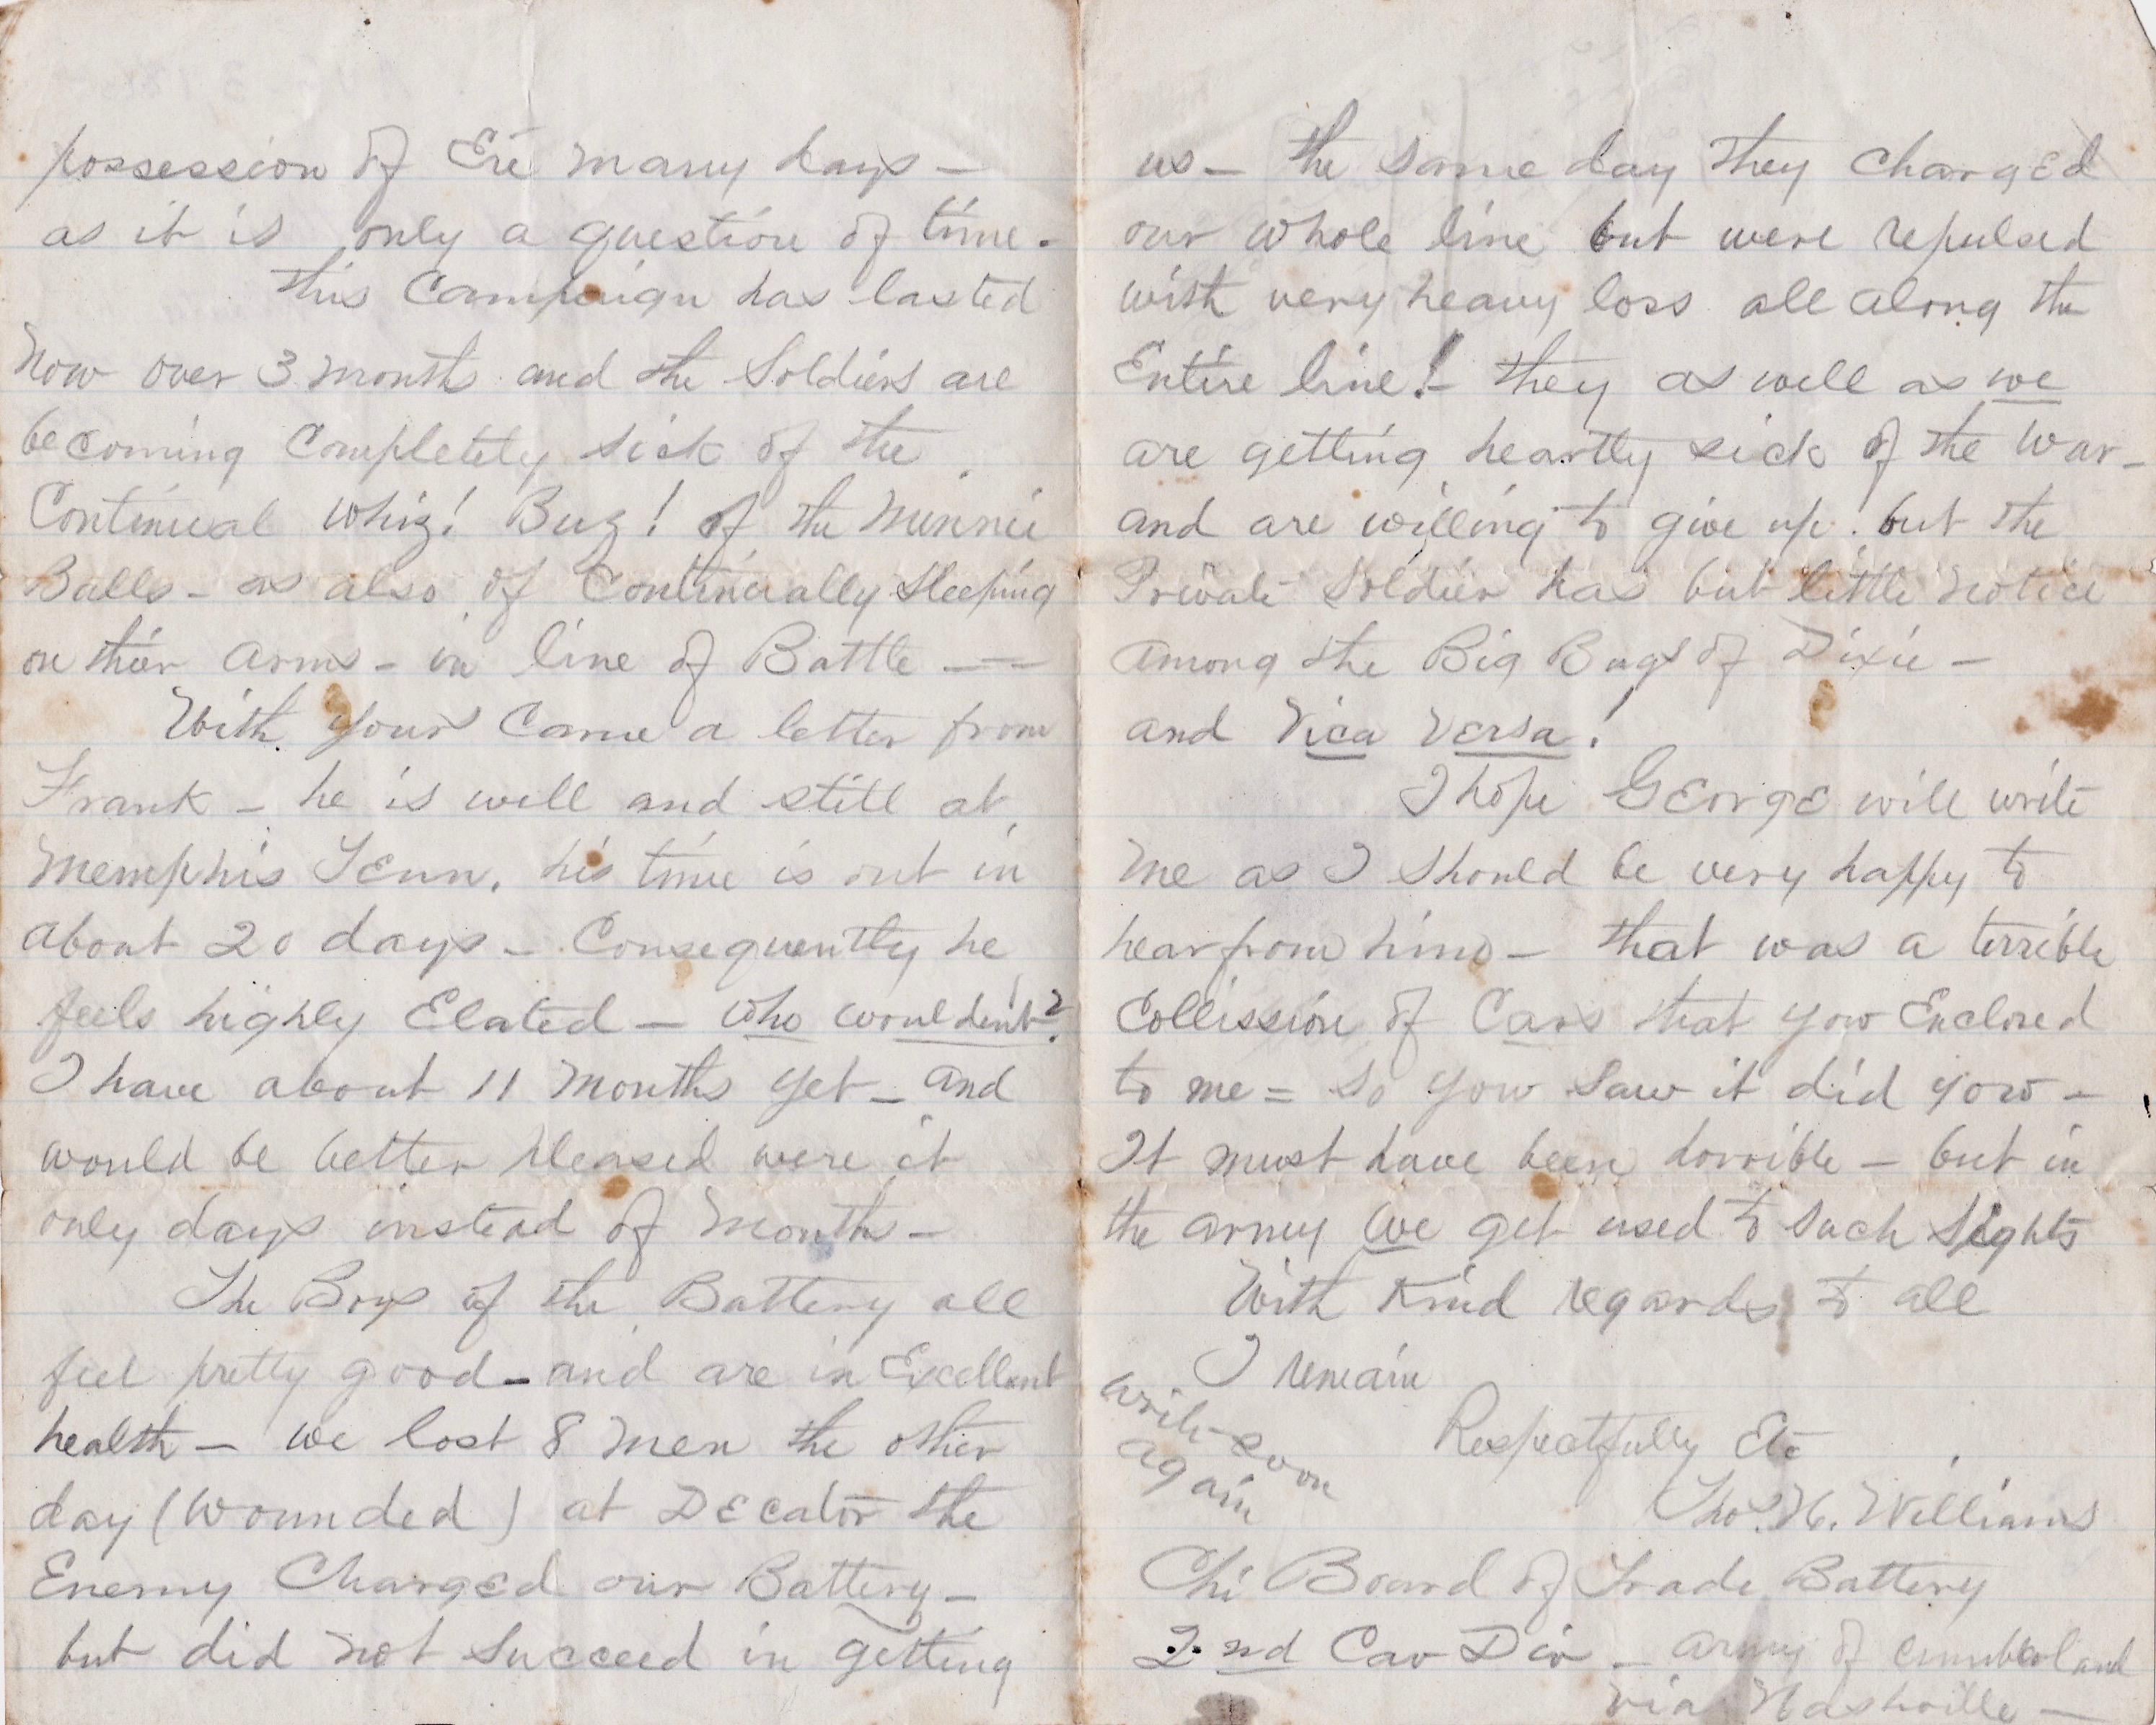 possession of Ere many days –
as it is only a question of time.
this Campaign has lasted
Now over 3 month and the Soldiers are
becoming Completely sick of the
Continual whiz! Buz! of the Minnie
Balls – as also of Continually Sleeping
on thier arms – in line of Battle —
With yours Came a letter from
Frank – he is well and still at
Memphis Tenn. his time is out in
about 20 days – Consequently he
feels highly Elated – who wouldent?
I have about 11 Months yet – and
would be better pleased were it
only days instead of Months –
The Boys of the Battery all
feel pretty good – and are in Excellent
health – we lost 8 Men the other
day (Wounded) at Decator the
Enemy Charged our Battery –
but did not Succeed in getting
us – the same day they Charged
our whole line but were repulsed
with very heavy loss all along the
Entire line! – they as well as we
are getting heartly sick of the War –
and are willing to give up. but the
Private Soldier has but little Notice
Among the Big Bugs of Dixie –
and Vica Versa!
I hope George will write
Me as I Should be very happy to
hear from him – that was a terrible
Collission of Cars that yow Enclosed
to me = So yow Saw it did yow –
It must have been horrible – but in
the army we get used to Such Sights
With Kind regards to all
I remain
Respectfully Etc
write soon
again
Thos. H. Williams
Chi Board of Trade Battery
2nd Cav Div – Army of Cumberland
via Nashville —